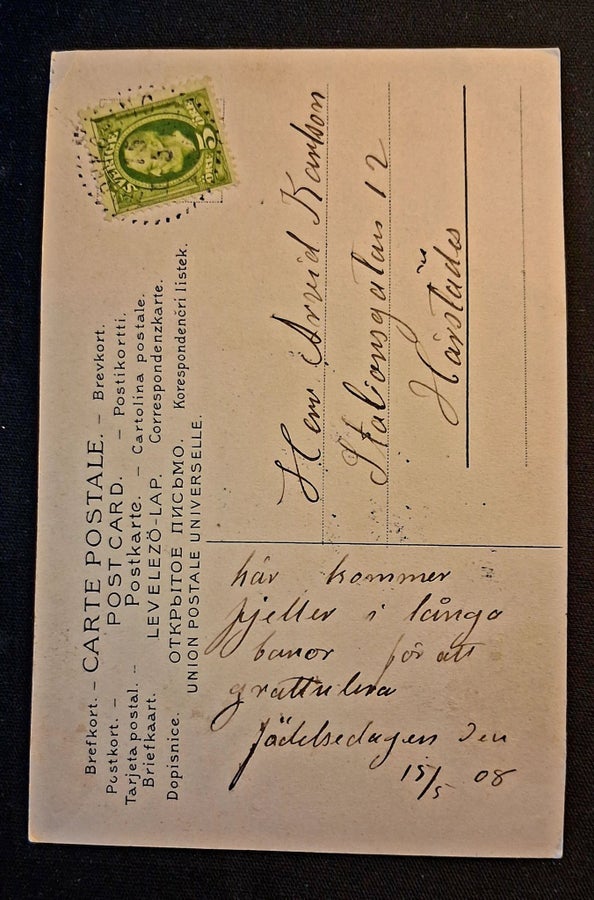 Brefkort. – CARTE POSTALE. – Brevkort.
Postkort. – POST CARD. – Postikortti.
Tarjeta postal. – Postkarte. – Cartolina postale.
Briefkaart. LEVELEZÖ-LAP. Correspondenzkarte.
Dopisnice. ОТКРЫТОЕ ПИСЬМО. Korespondenčri listek.
UNION POSTALE UNIVERSELLE.
SVERIGE
5
Herr Arvid Karlson
Stationsgatan 12
här kommer
i långa
banor för att
grattulera
födelsedagen den
15/5 08